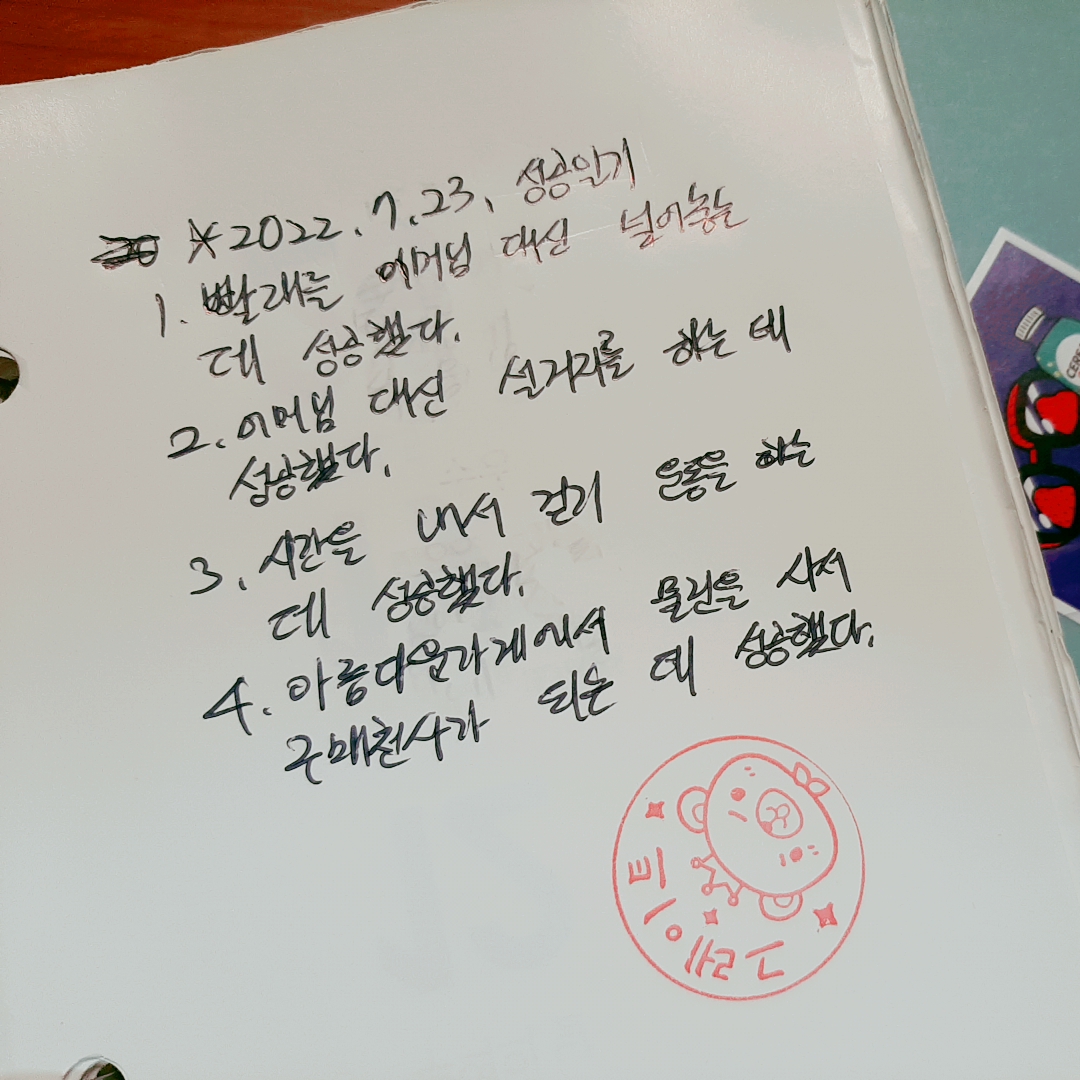 *2022.7.23. 성공일기
1. 빨래를 어머님 대신 널어놓는
데 성공했다.
2. 어머님 대신 설거지를 하는 데
성공했다.
3. 시간을 내서 걷기 운동을 하는
데 성공했다.
4. 아름다운가게에서 물건을 사서
구매천사가 되는 데 성공했다.
CERE